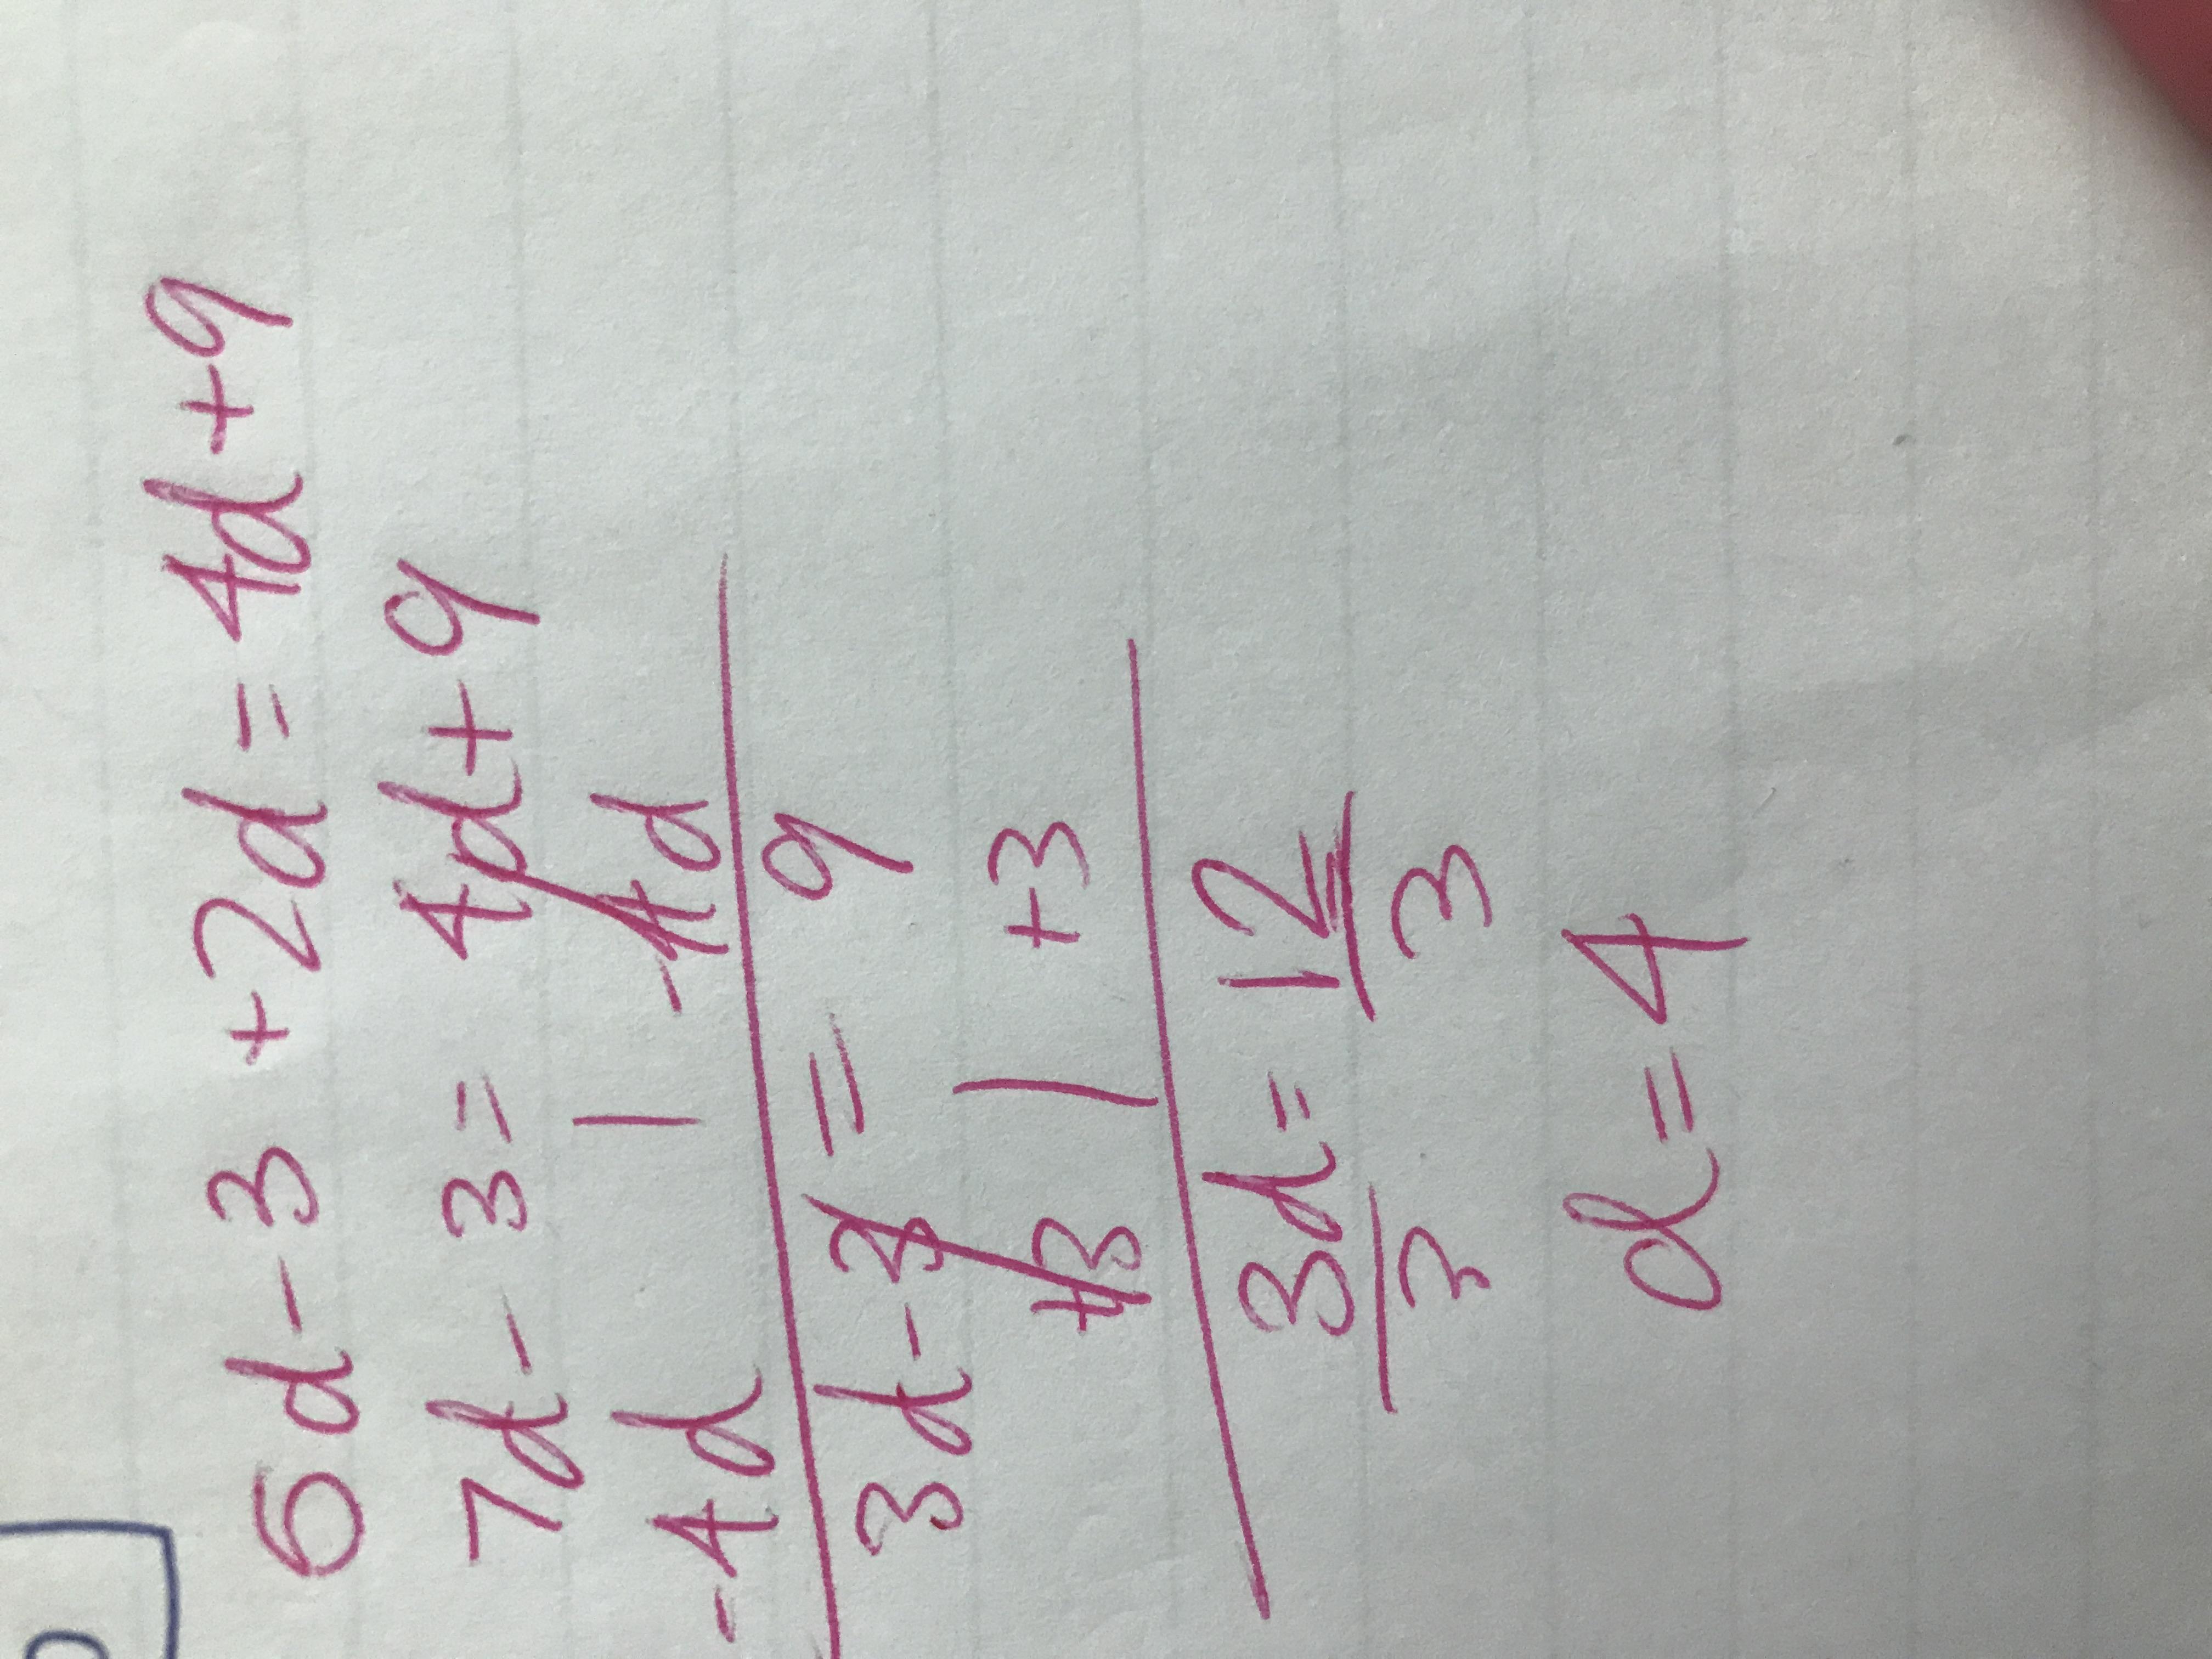 5d - 3 + 2d = 4d + 9
7d - 3 = 4d + 9
-4d | -4d
3d - 3 = 9
+3 | +3
3d = 12
3 3
d = 4